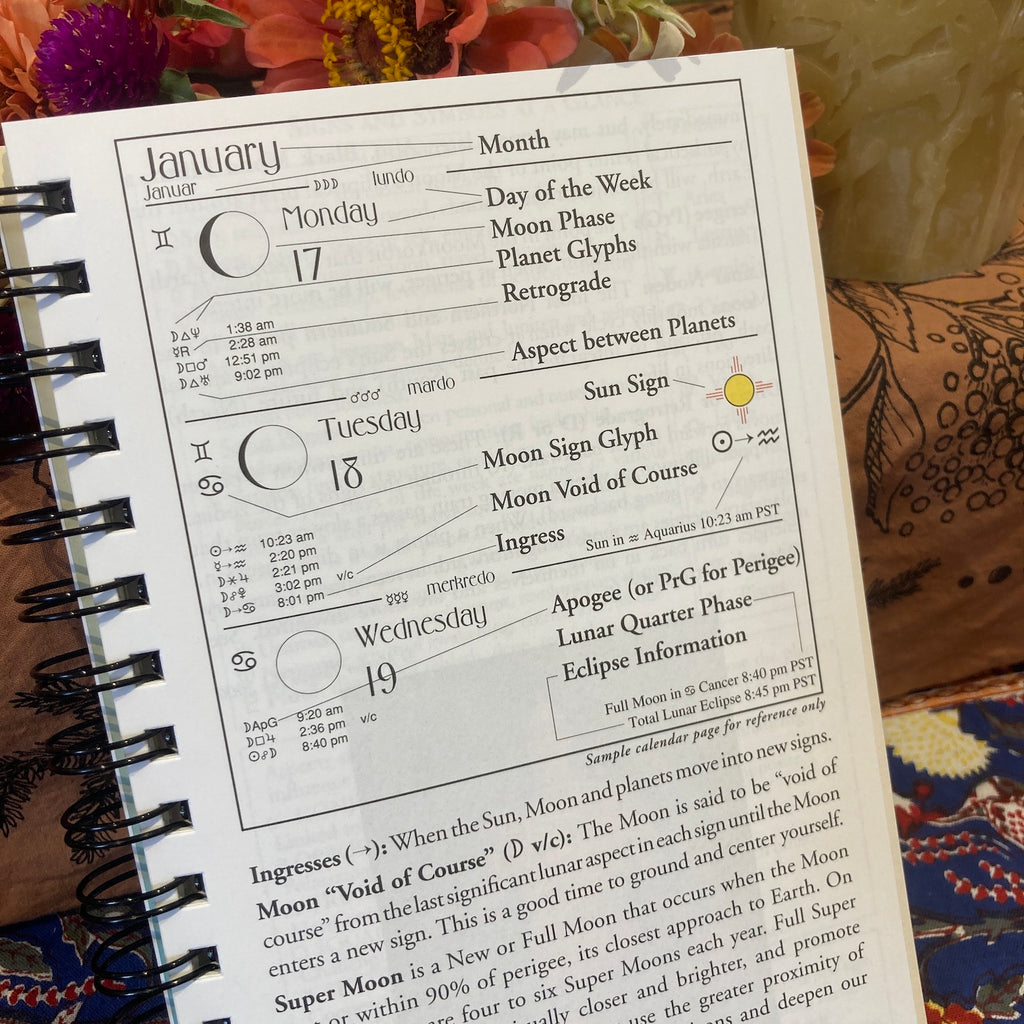 January
Januar
☽☽☽ lundo
Month
Monday
17
Day of the Week
Moon Phase
Planet Glyphs
Retrograde
♊
☽△♆ 1:38 am
☿R 2:28 am
☽□♂ 12:51 pm
☽△♅ 9:02 pm
Aspect between Planets
♂♂♂ mardo
Tuesday
18
Sun Sign
Moon Sign Glyph
Moon Void of Course
Ingress
♊
♋
☉→♒
☉→♒ 10:23 am
☿→♒ 2:20 pm
☽⚹♃ 2:21 pm
☽☍♀ 3:02 pm v/c
☽→♋ 8:01 pm
Sun in ♒ Aquarius 10:23 am PST
☿☿☿ merkredo
Wednesday
19
♋
Apogee (or PrG for Perigee)
Lunar Quarter Phase
Eclipse Information
☽ApG 9:20 am
☽□♃ 2:36 pm v/c
☉☍☽ 8:40 pm
Full Moon in ♋ Cancer 8:40 pm PST
Total Lunar Eclipse 8:45 pm PST
Sample calendar page for reference only
Ingresses (→): When the Sun, Moon and planets move into new signs.
Moon “Void of Course” (☽ v/c): The Moon is said to be “void of
course” from the last significant lunar aspect in each sign until the Moon
enters a new sign. This is a good time to ground and center yourself.
Super Moon is a New or Full Moon that occurs when the Moon
or within 90% of perigee, its closest approach to Earth. On
four to six Super Moons each year. Full Super
closer and brighter, and promote
use the greater proximity of
and deepen our